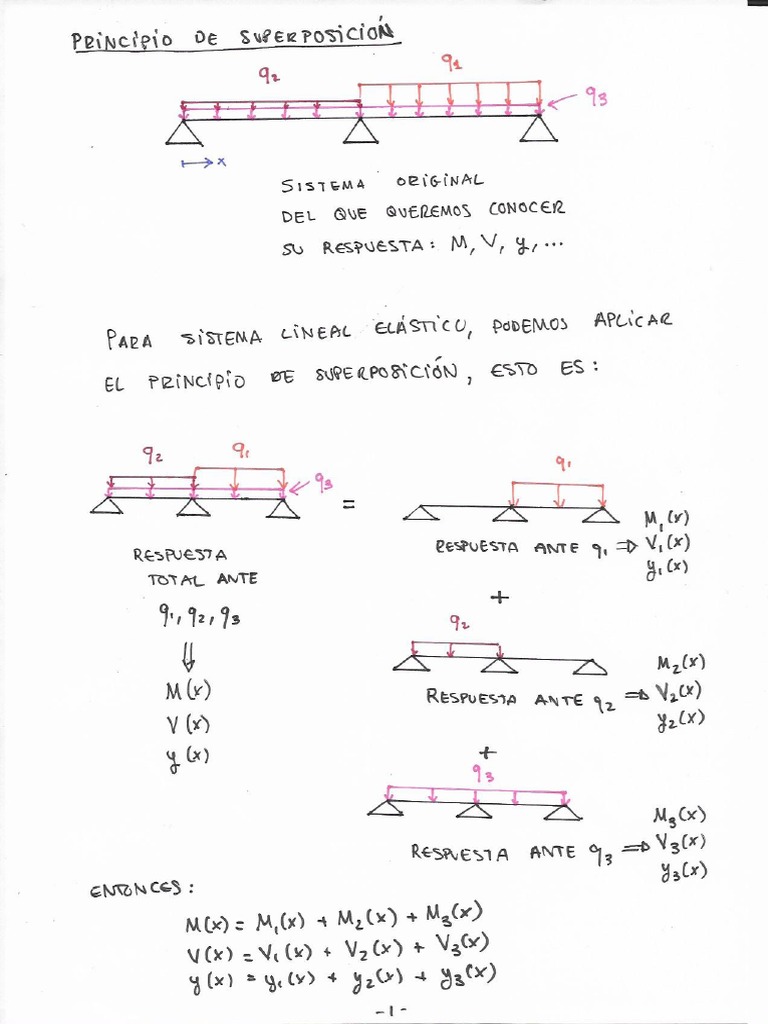 PRINCIPIO DE SUPERPOSICIÓN
q2 q1
q3
x
SISTEMA ORIGINAL
DEL QUE QUEREMOS CONOCER
SU RESPUESTA: M, V, y, ...
PARA SISTEMA LINEAL ELÁSTICO, PODEMOS APLICAR
EL PRINCIPIO DE SUPERPOSICIÓN, ESTO ES:
q2 q1
q3
=
RESPUESTA
TOTAL ANTE
q1, q2, q3
⇓
M(x)
V(x)
y(x)
q1
RESPUESTA ANTE q1 ⇒
M1(x)
V1(x)
y1(x)
+
q2
RESPUESTA ANTE q2 ⇒
M2(x)
V2(x)
y2(x)
+
q3
RESPUESTA ANTE q3 ⇒
M3(x)
V3(x)
y3(x)
ENTONCES:
M(x) = M1(x) + M2(x) + M3(x)
V(x) = V1(x) + V2(x) + V3(x)
y(x) = y1(x) + y2(x) + y3(x)
-1-